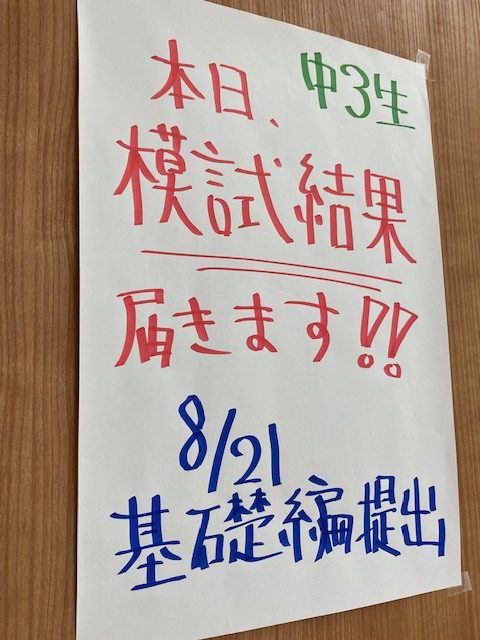 本日、中3生
模試結果
届きます!!
8/21
基礎編提出